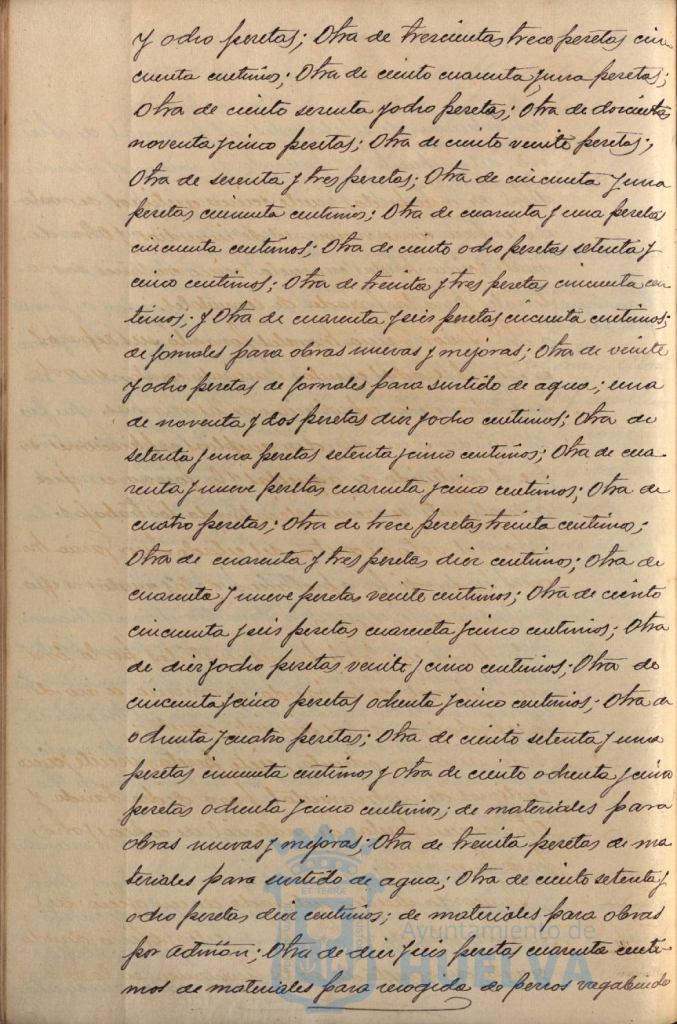 y ocho pesetas; Otra de trescientas trece pesetas cin-
cuenta centimos; Otra de ciento cuarenta y una pesetas;
Otra de ciento sesenta y ocho pesetas; Otra de doscientas
noventa y cinco pesetas; Otra de ciento veinte pesetas;
Otra de sesenta y tres pesetas; Otra de cincuenta y una
pesetas cincuenta centimos; Otra de cuarenta y una pesetas
cincuenta centimos; Otra de ciento ocho pesetas setenta y
cinco centimos; Otra de treinta y tres pesetas cincuenta cen-
timos; y Otra de cuarenta y seis pesetas cincuenta centimos;
de jornales para obras nuevas y mejoras; Otra de veinte
y ocho pesetas de jornales para surtido de agua; una
de noventa y dos pesetas diez y ocho centimos; Otra de
setenta y una pesetas setenta y cinco centimos; Otra de cua-
renta y nueve pesetas cuarenta y cinco centimos; Otra de
cuatro pesetas; Otra de trece pesetas treinta centimos;
Otra de cuarenta y tres pesetas diez centimos; Otra de
cuarenta y nueve pesetas veinte centimos; Otra de ciento
cincuenta y seis pesetas cuarenta y cinco centimos; Otra
de diez y ocho pesetas veinte y cinco centimos; Otra de
cincuenta y cinco pesetas ochenta y cinco centimos; Otra de
ochenta y cuatro pesetas; Otra de ciento setenta y una
pesetas cincuenta centimos y Otra de ciento ochenta y cinco
pesetas ochenta y cinco centimos; de materiales para
obras nuevas y mejoras; Otra de treinta pesetas de ma
teriales para surtido de agua; Otra de ciento setenta y
ocho pesetas diez centimos; de materiales para obras
por admon; Otra de diez y seis pesetas cuarenta centi-
mos de materiales para recogida de perros vagabundo
Ayuntamiento de
HUELVA